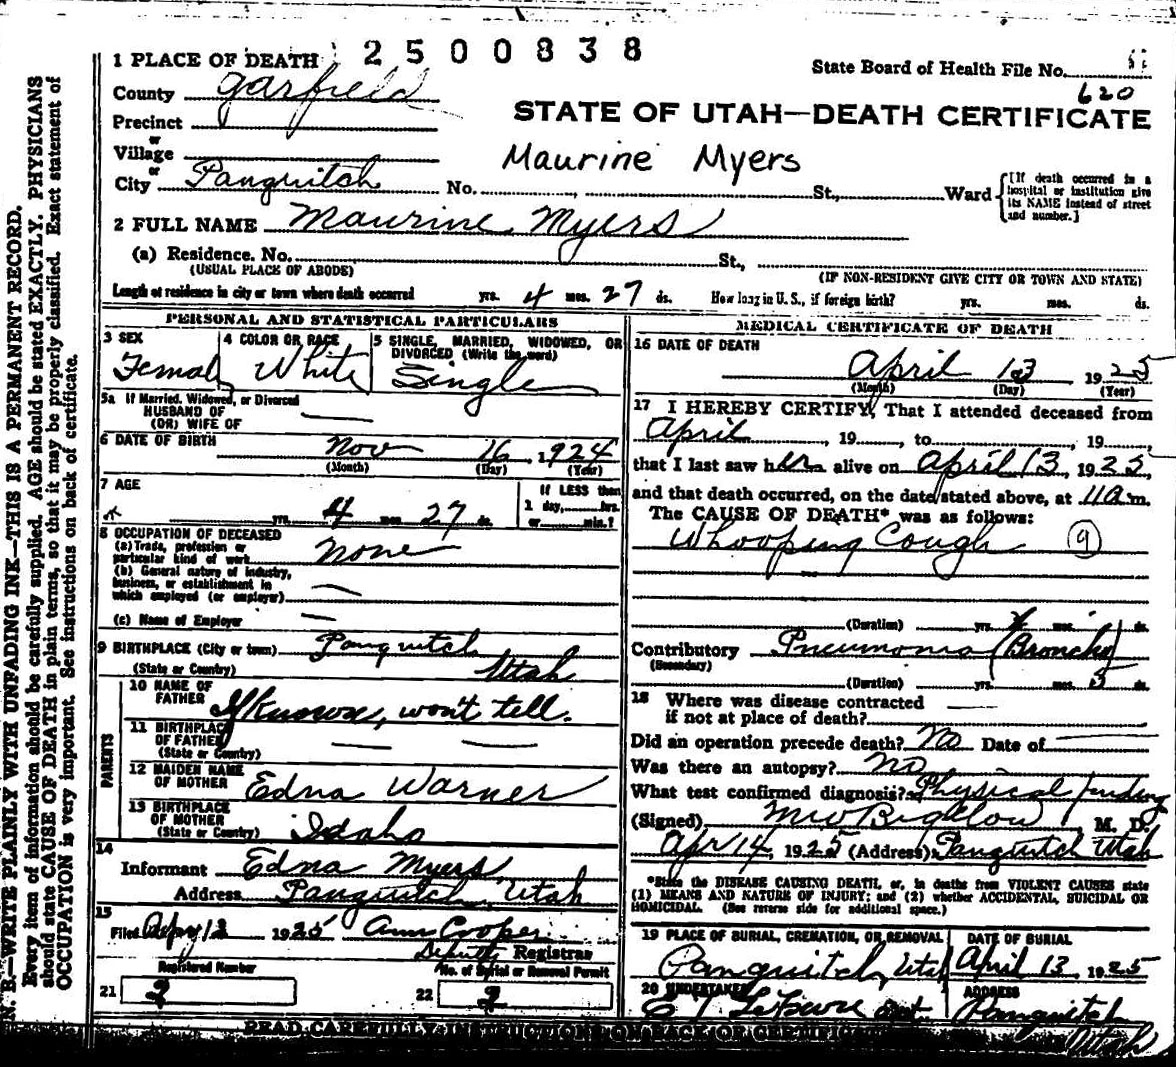 2500838
1 PLACE OF DEATH
State Board of Health File No.
620
County Garfield
STATE OF UTAH—DEATH CERTIFICATE
Precinct
or
Village
Maurine Myers
or
City Panguitch No. , St., Ward
[If death occurred in a hospital or institution give its NAME instead of street and number.]
2 FULL NAME Maurine Myers
(a) Residence. No. St.,
(USUAL PLACE OF ABODE) (IF NON-RESIDENT GIVE CITY OR TOWN AND STATE)
Length of residence in city or town where death occurred yrs. 4 mos. 27 ds. How long in U. S., if foreign birth? yrs. mos. ds.
PERSONAL AND STATISTICAL PARTICULARS
3 SEX 4 COLOR OR RACE 5 SINGLE, MARRIED, WIDOWED, OR
DIVORCED (Write the word)
Female White Single
5a If Married, Widowed, or Divorced
HUSBAND OF
(OR) WIFE OF
6 DATE OF BIRTH Nov 16 1924
(Month) (Day) (Year)
7 AGE
If LESS than
1 day, hrs.
or min.?
yrs. 4 mos. 27 ds.
8 OCCUPATION OF DECEASED
(a) Trade, profession or
particular kind of work None
(b) General nature of industry,
business, or establishment in
which employed (or employer)
(c) Name of Employer
9 BIRTHPLACE (City or town) Panguitch
(State or Country) Utah
PARENTS
10 NAME OF
FATHER If Known, won't tell.
11 BIRTHPLACE
OF FATHER
(State or Country)
12 MAIDEN NAME
OF MOTHER Edna Warner
13 BIRTHPLACE
OF MOTHER
(State or Country) Idaho
14
Informant Edna Myers
Address Panguitch, Utah
15
Filed Apr 13 1925 Ann Cooper
Deputy Registrar
Registered Number No. of Burial or Removal Permit
21 2 22 2
MEDICAL CERTIFICATE OF DEATH
16 DATE OF DEATH
April 13 1925
(Month) (Day) (Year)
17 I HEREBY CERTIFY, That I attended deceased from
April , 19 , to , 19
that I last saw her alive on April 13, 1925,
and that death occurred, on the date stated above, at 11 a m.
The CAUSE OF DEATH* was as follows:
Whooping Cough 9
(Duration) yrs. mos. ds.
Contributory Pneumonia (Broncho)
(Secondary)
(Duration) yrs. mos. 5 ds.
18 Where was disease contracted
if not at place of death?
Did an operation precede death? No Date of
Was there an autopsy? No
What test confirmed diagnosis? Physical finding
(Signed) M W Bigelow M. D.
Apr 14, 1925 (Address) Panguitch Utah
*State the DISEASE CAUSING DEATH, or, in deaths from VIOLENT CAUSES state
(1) MEANS AND NATURE OF INJURY; and (2) whether ACCIDENTAL, SUICIDAL OR
HOMICIDAL. (See reverse side for additional space.)
19 PLACE OF BURIAL, CREMATION, OR REMOVAL DATE OF BURIAL
Panguitch, Utah April 13, 1925
20 UNDERTAKER ADDRESS
Panguitch
Utah
READ CAREFULLY INSTRUCTIONS ON BACK OF CERTIFICATE
N. B.—WRITE PLAINLY WITH UNFADING INK—THIS IS A PERMANENT RECORD.
Every item of information should be carefully supplied. AGE should be stated EXACTLY. PHYSICIANS
should state CAUSE OF DEATH in plain terms, so that it may be properly classified. Exact statement of
OCCUPATION is very important. See instructions on back of certificate.